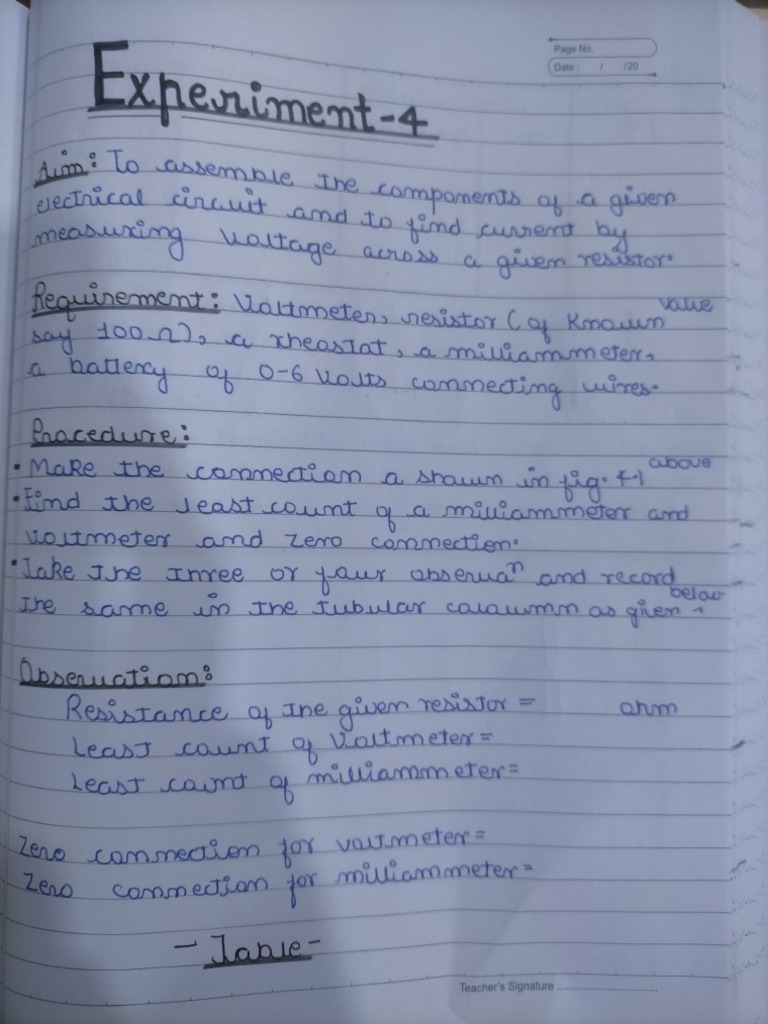 Page No.
Date : / /20
Experiment-4
Aim: To assemble the components of a given
electrical circuit and to find current by
measuring voltage across a given resistor.
Requirement: Voltmeter, resistor (of known value
say 100Ω), a rheostat, a milliammeter,
a battery of 0-6 volts connecting wires.
Procedure:
• Make the connection a shown in fig. 4.1 above
• Find the least count of a milliammeter and
voltmeter and zero connection.
• Take the three or four observaⁿ and record
the same in the tubular coloumn as given below
Observation:
Resistance of the given resistor = ohm
Least count of voltmeter=
Least count of milliammeter=
Zero connection for voltmeter=
Zero connection for milliammeter=
- Table -
Teacher's Signature ..............................